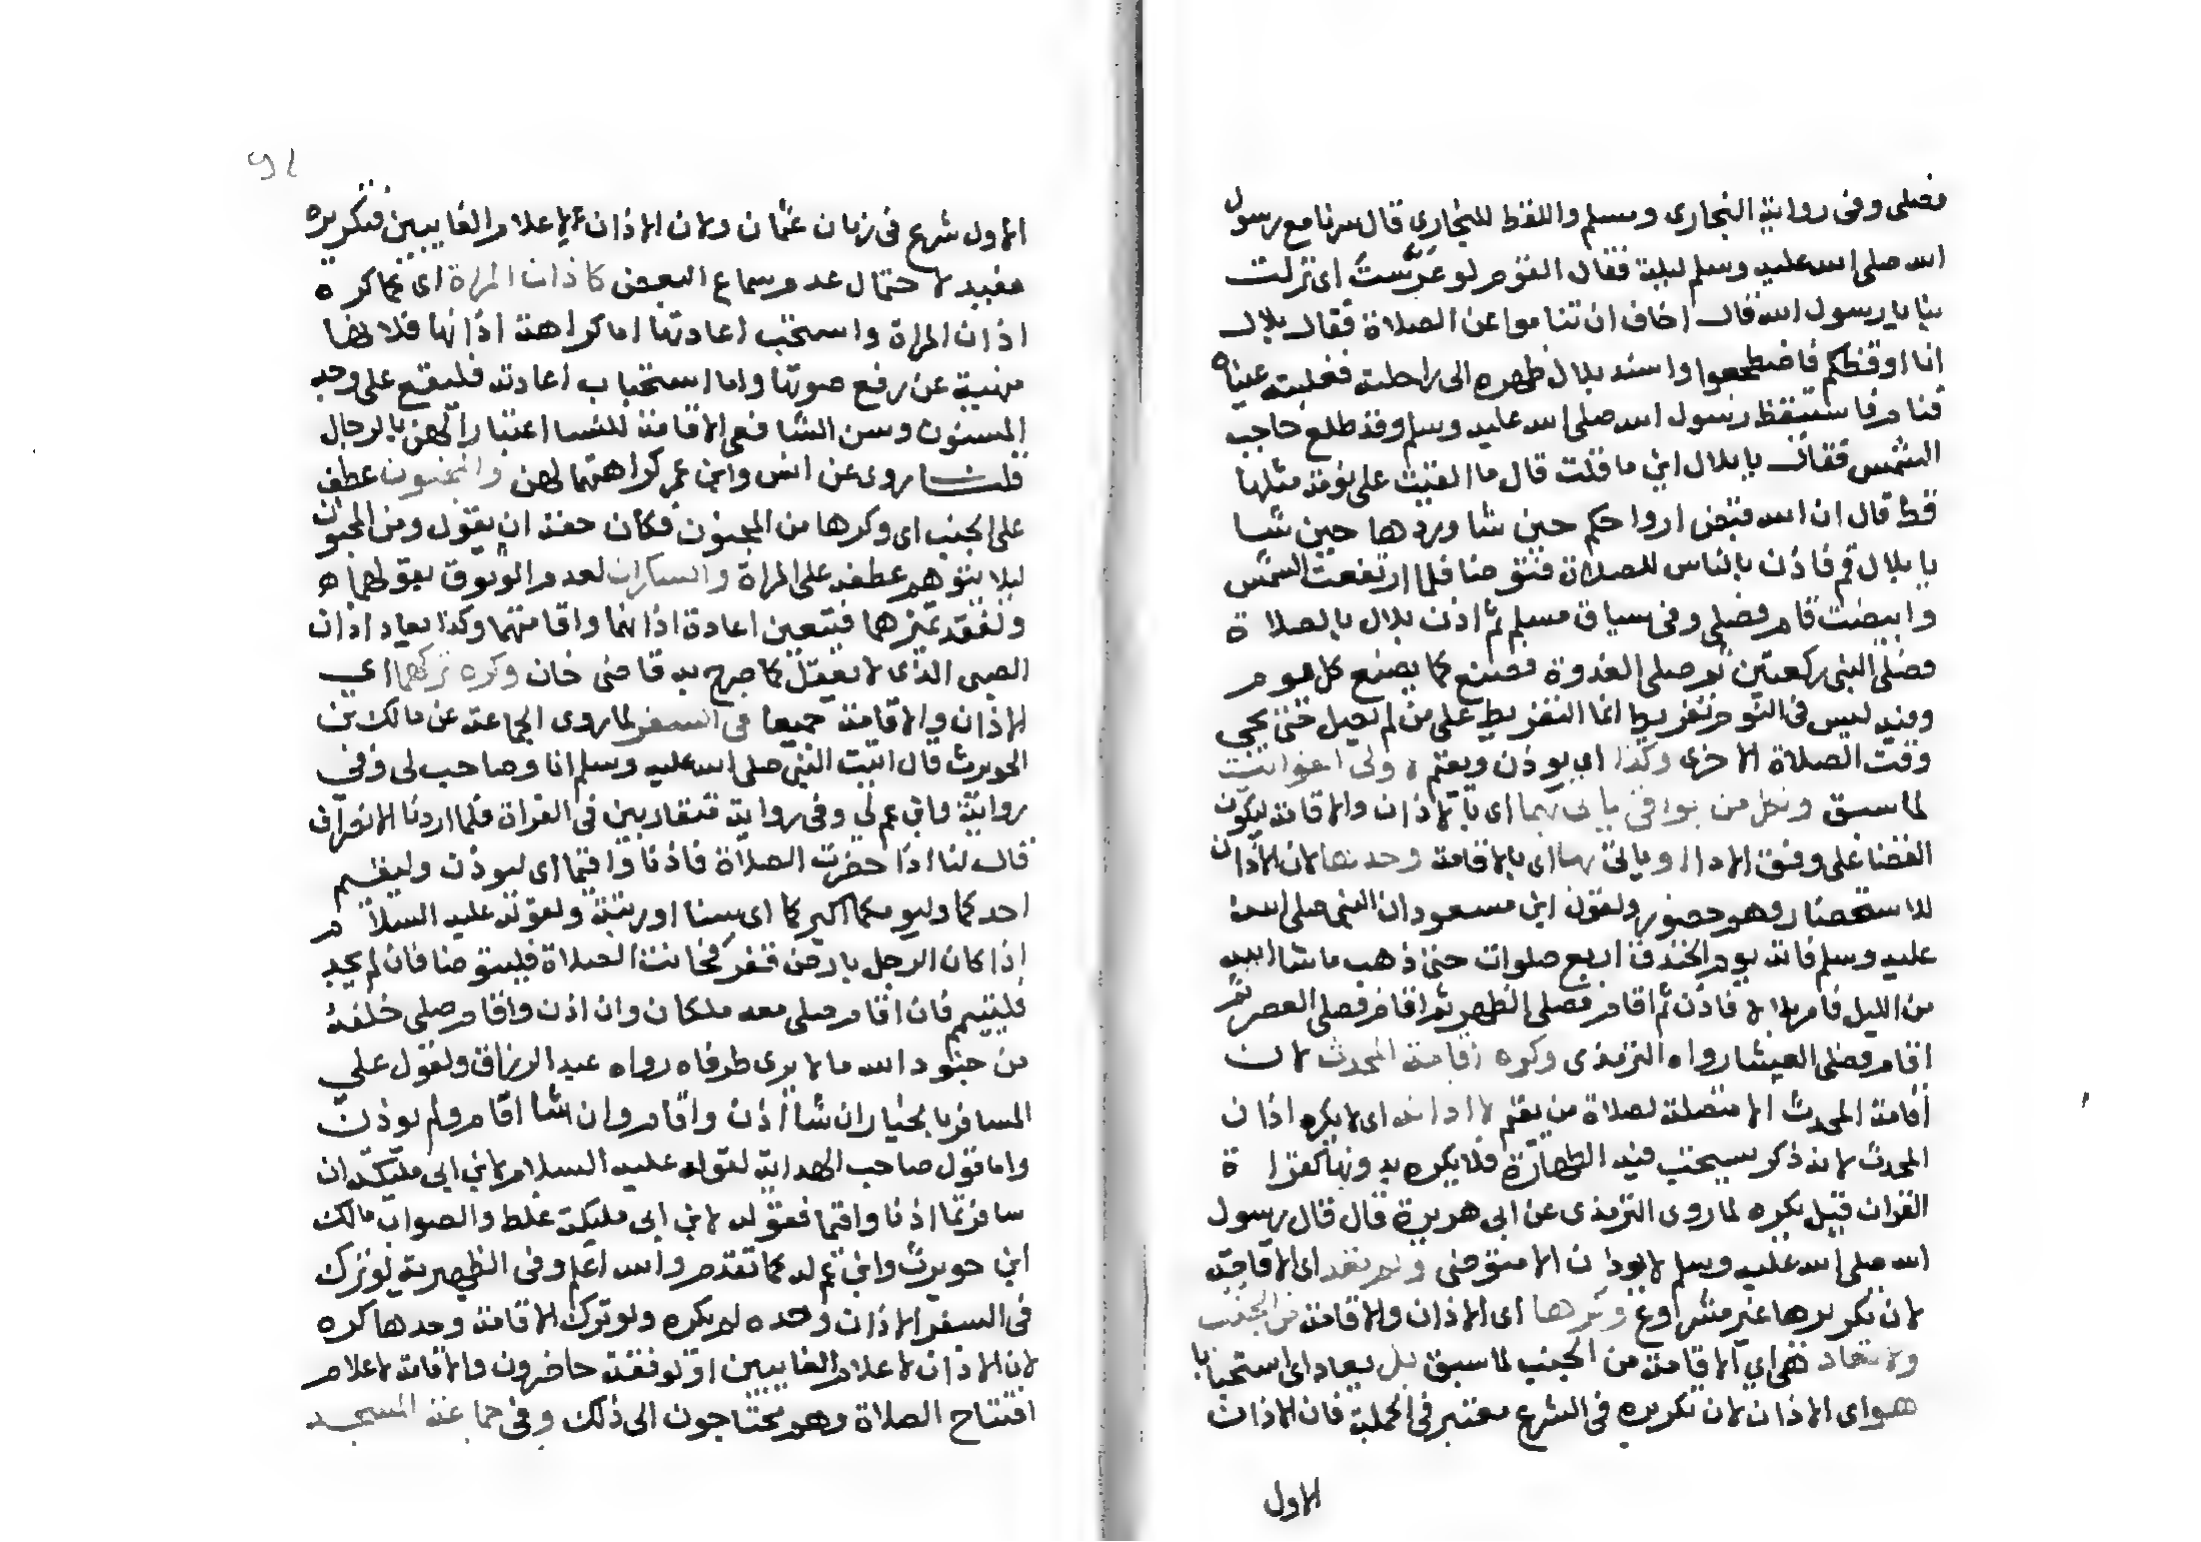 فصلى وفى رواية البخارى ومسلم واللفظ للبخارى قال سرنا مع رسول
الله صلى الله عليه وسلم ليلة فقال القوم لو عرّستَ اى نزلت
بنا يا رسول الله قال اخاف ان تناموا عن الصلاة فقال بلال
انا اوقظكم فاضطجعوا واسند بلال ظهره الى راحلته فغلبته عيناه
فنام فاستيقظ رسول الله صلى الله عليه وسلم وقد طلع حاجب
الشمس فقال يا بلال اين ما قلت قال ما القيت على نومة مثلها
قط قال ان الله قبض ارواحكم حين شا وردها حين شا
يا بلال قم فاذن بالناس للصلاة فتوضا فلما ارتفعت الشمس
وابيضت قام فصلى وفى سياق مسلم ثم اذن بلال بالصلاة
فصلى النبى ركعتين ثم صلى الغدوة فصنع كما يصنع كل يوم
وفيه ليس فى النوم تفريط انما التفريط على من لم يصل حتى يجى
وقت الصلاة الاخرى وكذا اى يوذن ويقيم لاولى الفوايت
لما سبق وخيّر من بواقى يا تى بهما اى بالاذان والاقامة ليكون
القضا على وفق الادا او ياتى بها اى بالاقامة وحدها لان الاذان
للاستحضار وهم حضور ولقول ابن مسعود ان النبى صلى الله
عليه وسلم فاته يوم الخندق اربع صلوات حتى ذهب ما شا الله
من الليل فامر بلالا فاذن ثم اقام فصلى الظهر ثم اقام فصلى العصر ثم
اقام فصلى العشا رواه الترمذى وكره اقامة المحدث لان
اقامة المحدث لا متصلة لصلاة من يقيم لا اذانه اى لا يكره اذان
المحدث لانه ذكر يستحب فيه الطهارة فلا يكره بدونها كقراة
القران قيل يكره لما روى الترمذى عن ابى هريرة قال قال رسول
الله صلى الله عليه وسلم لا يوذن الا متوضى ولم تعد اى الاقامة
لان تكريرها غير مشروع وكرها اى الاذان والاقامة من الجنب
ولا تعاد هى اى الاقامة من الجنب لما سبق بل يعاد اى استحبابا
هو اى الاذان لان تكريره فى الشرع معتبر فى الجملة فان الاذان
الاول
الاول شرع فى زمان عثمان ولان الاذان لاعلام الغايبين فتكريره
مفيد لاحتمال عدم سماع البعض كاذان المراة اى كما كره
اذان المراة واستحب اعادتها اما كراهة اذانها فلانها
منهية عن رفع صوتها واما استحباب اعادته فليقع على وجه
المسنون وسن الشافعى الاقامة للنسا اعتبارا لهن بالرجال
قلنا روى عن انس وابن عمر كراهتهما لهن والمجنون عطف
على الجنب اى وكرها من المجنون فكان حقه ان يقول ومن المجنون
ليلا يتوهم عطفه على المراة والسكران لعدم الوثوق بقولهما
ولفقد تميزهما فيتعين اعادة اذانهما واقامتهما وكذا يعاد اذان
الصبى الذى لا يعقل كما صرح به قاضى خان وكره تركهما اى
الاذان والاقامة جميعا فى السفر لما روى الجماعة عن مالك بن
الحويرث قال اتيت النبى صلى الله عليه وسلم انا وصاحب لى وفى
رواية وابن عم لى وفى رواية متقاربين فى القراة فلما اردنا الانصراف
قال لنا اذا حضرت الصلاة فاذنا واقيما اى ليوذن وليقم
احدكما وليومكما اكبركما اى سنا او رتبة ولقوله عليه السلام
اذا كان الرجل بارض قفر فحانت الصلاة فليتوضا فان لم يجد
فليتيمم فان اقام صلى معه ملكان وان اذن واقام صلى خلفه
من جنود الله ما لا يرى طرفاه رواه عبد الرزاق ولقول على
المسافر بالخيار ان شا اذن واقام وان شا اقام ولم يوذن
واما قول صاحب الهداية لقوله عليه السلام لابنى ابى مليكة ان
سافرتما اذنا واقيما فقوله لابنى ابى مليكة غلط والصواب مالك
ابن حويرث وابن عم له كما تقدم والله اعلم وفى الظهيرية لو ترك
فى السفر الاذان وحده لم يكره ولو ترك الاقامة وحدها كره
لان الاذان لاعلام الغايبين او لو فقده حاضرون والاقامة لاعلام
افتتاح الصلاة وهم محتاجون الى ذلك وفى جماعة المسجد